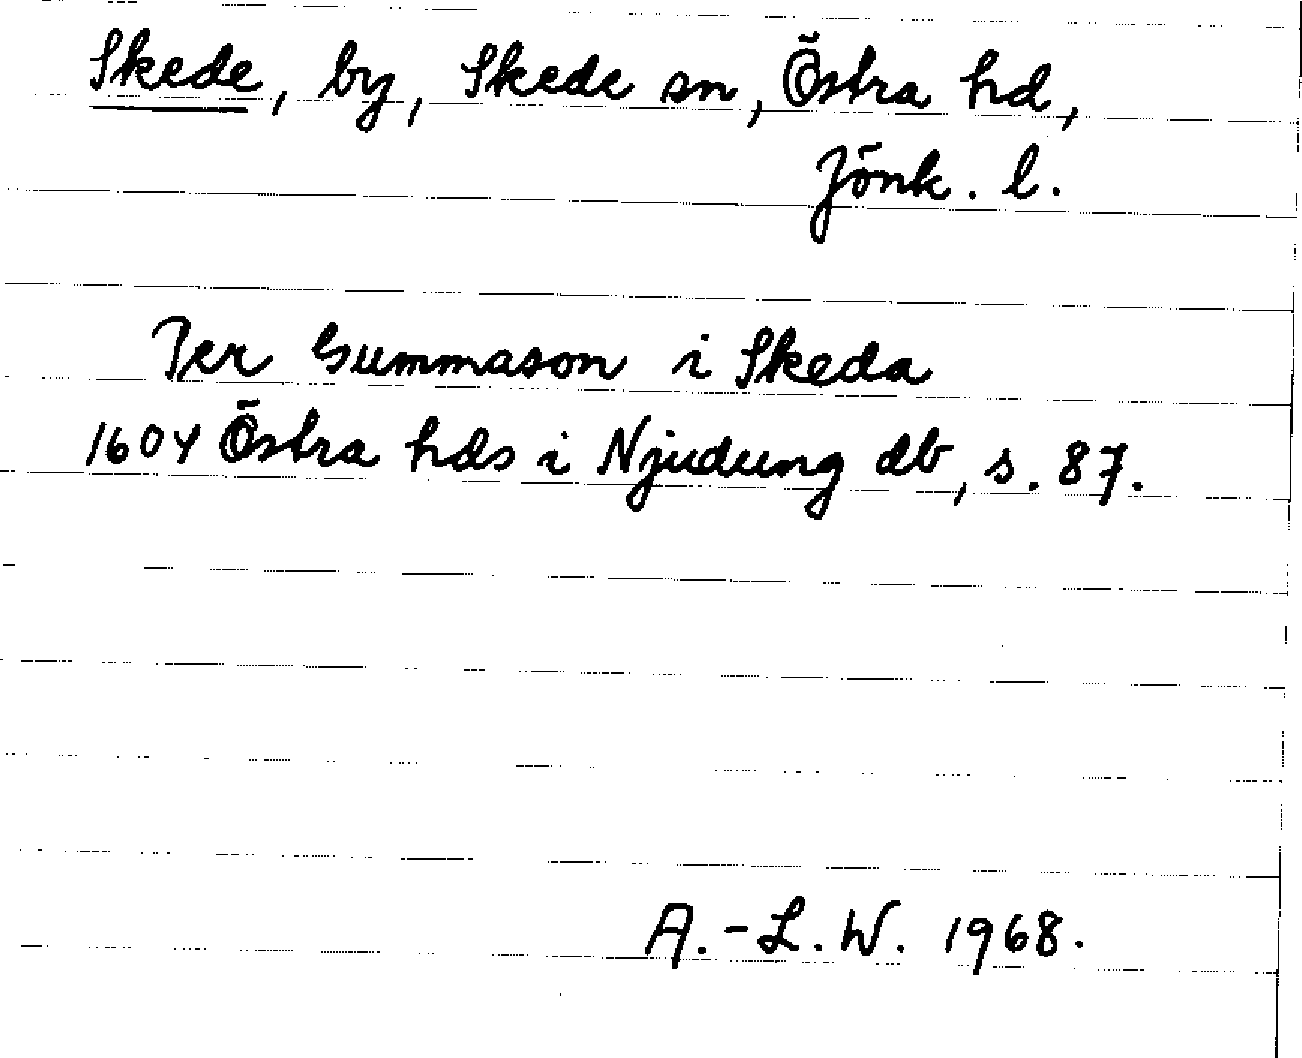 Skede, by, Skede sn, Östra hd,
Jönk. l.
Per Gummason i Skeda
1604 Östra hds i Njudung db, s. 87.
A.-L. W. 1968.